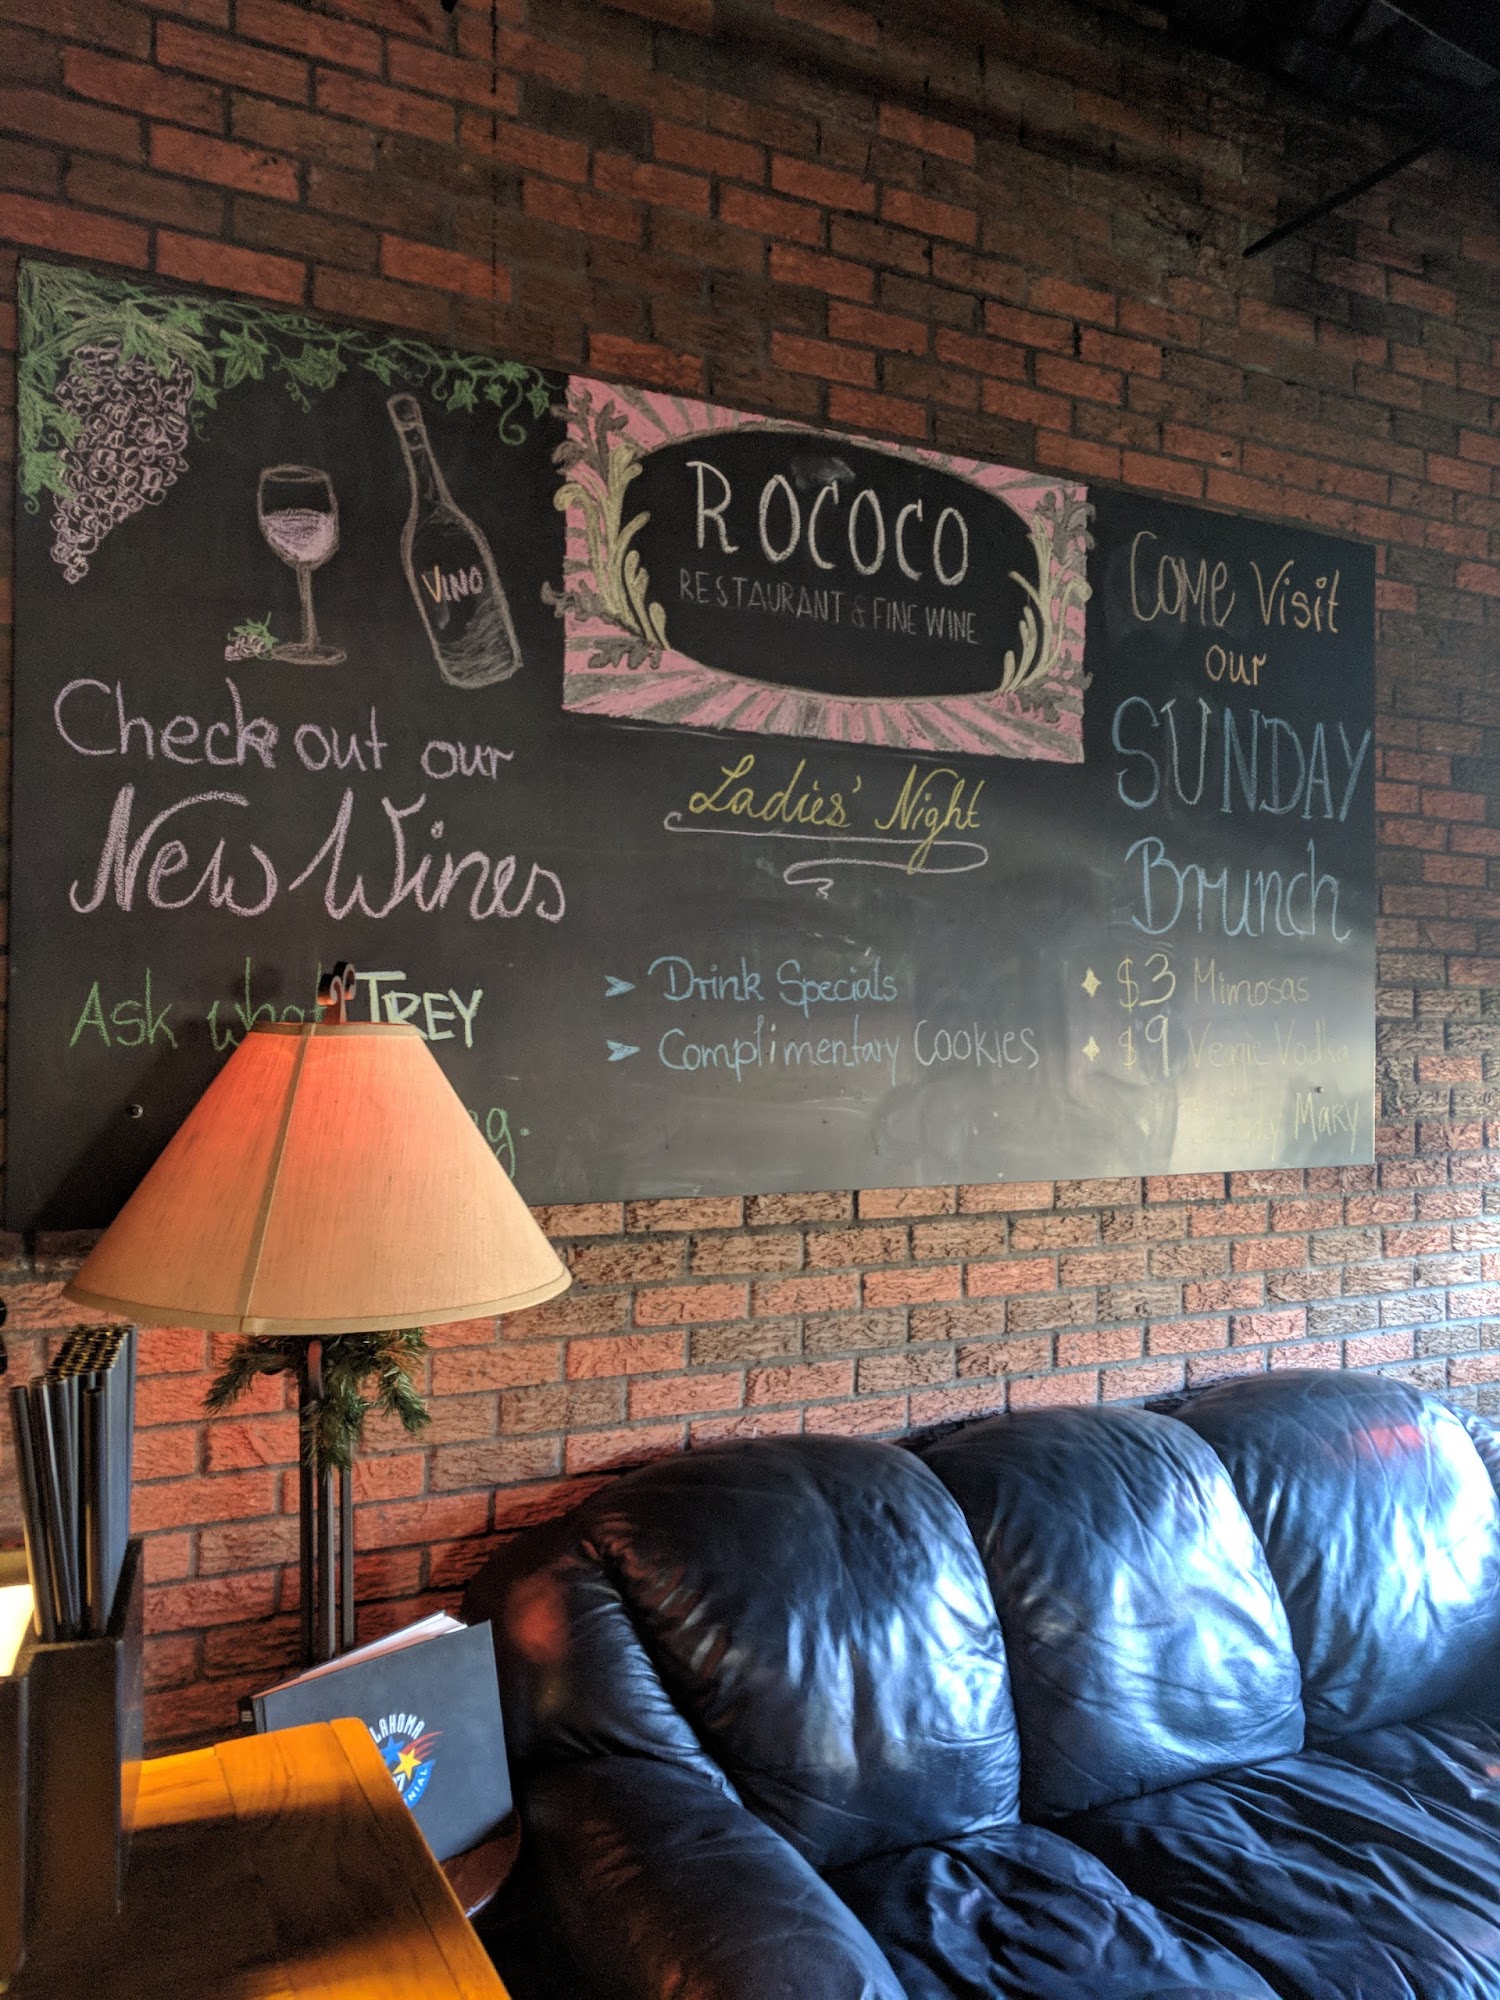 VINO
Check out our
New Wines
Ask what TREY
ROCOCO
RESTAURANT & FINE WINE
Ladies' Night
➤ Drink Specials
➤ Complimentary COOKIES
Come Visit
our
SUNDAY
Brunch
◆ $3 Mimosas
◆ $9 Veggie Vodka
Mary